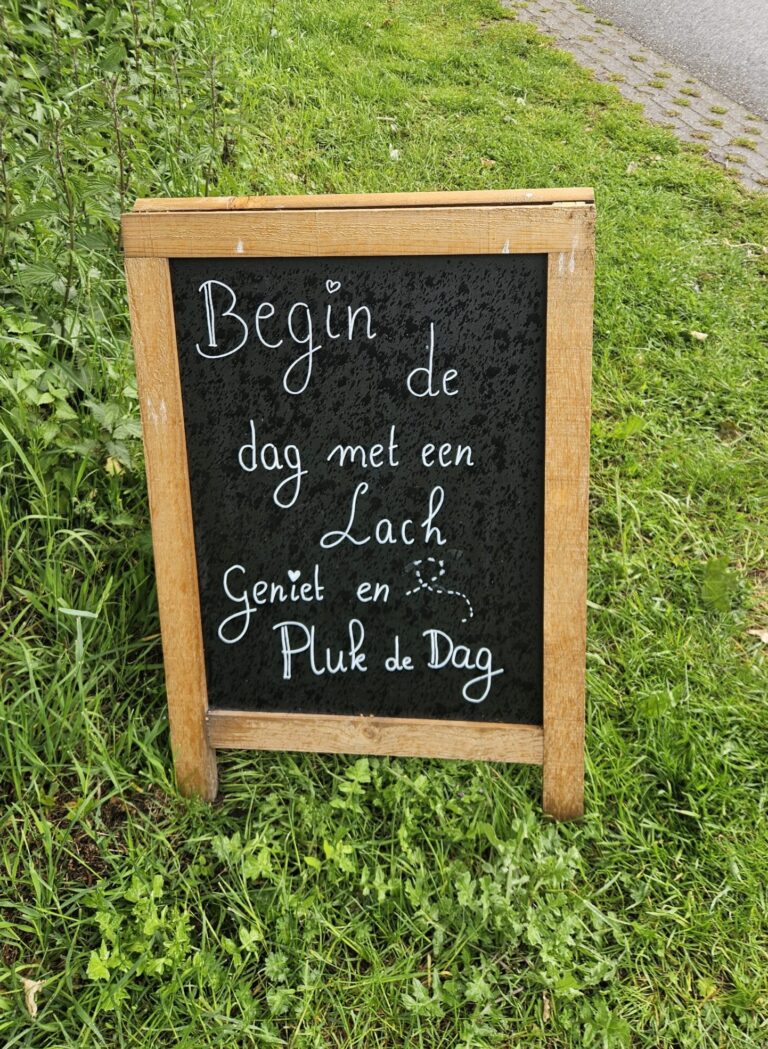 Begin
de
dag met een
Lach
Geniet en
Pluk de Dag